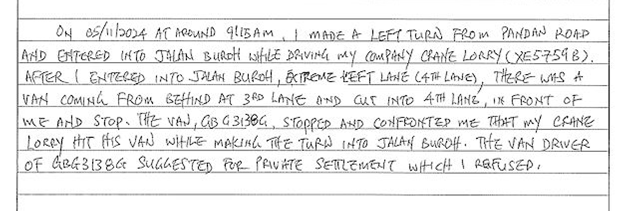 ON 05/11/2024 AT AROUND 9:15AM, I MADE A LEFT TURN FROM PANDAN ROAD
AND ENTERED INTO JALAN BUROH WHILE DRIVING MY COMPANY CRANE LORRY (XE5759B).
AFTER I ENTERED INTO JALAN BUROH, EXTREME LEFT LANE (4TH LANE), THERE WAS A
VAN COMING FROM BEHIND AT 3RD LANE AND CUT INTO 4TH LANE, IN FRONT OF
ME AND STOP. THE VAN, GBG3138G, STOPPED AND CONFRONTED ME THAT MY CRANE
LORRY HIT HIS VAN WHILE MAKING THE TURN INTO JALAN BUROH. THE VAN DRIVER
OF GBG3138G SUGGESTED FOR PRIVATE SETTLEMENT WHICH I REFUSED.